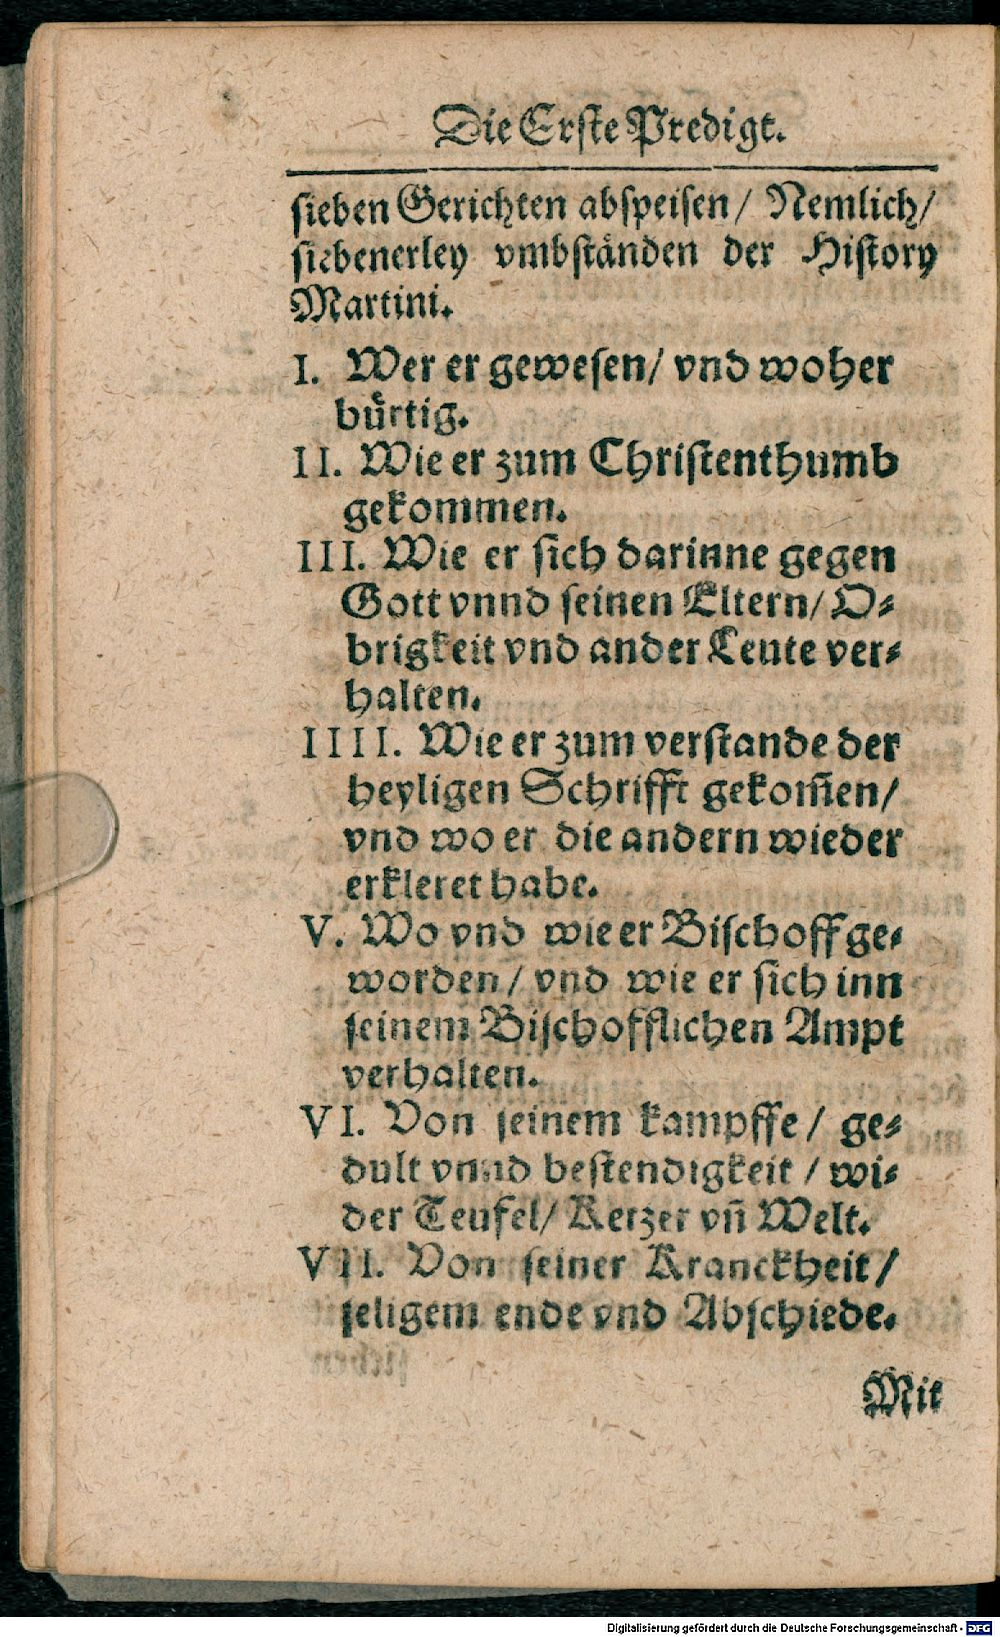 Die Erste Predigt.
sieben Gerichten abspeisen/ Nemlich/
siebenerley vmbständen der History
Martini.
I. Wer er gewesen/ vnd woher
bürtig.
II. Wie er zum Christenthumb
gekommen.
III. Wie er sich darinne gegen
Gott vnnd seinen Eltern/ O⸗
brigkeit vnd ander Leute ver⸗
halten.
IIII. Wie er zum verstande der
heyligen Schrifft gekom̃en/
vnd wo er die andern wieder
erkleret habe.
V. Wo vnd wie er Bischoff ge⸗
worden/ vnd wie er sich inn
seinem Bischofflichen Ampt
verhalten.
VI. Von seinem kampffe/ ge⸗
dult vnnd bestendigkeit/ wi⸗
der Teufel/ Ketzer vñ Welt.
VII. Von seiner Kranckheit/
seligem ende vnd Abschiede.
Mit
Digitalisierung gefördert durch die Deutsche Forschungsgemeinschaft - DFG